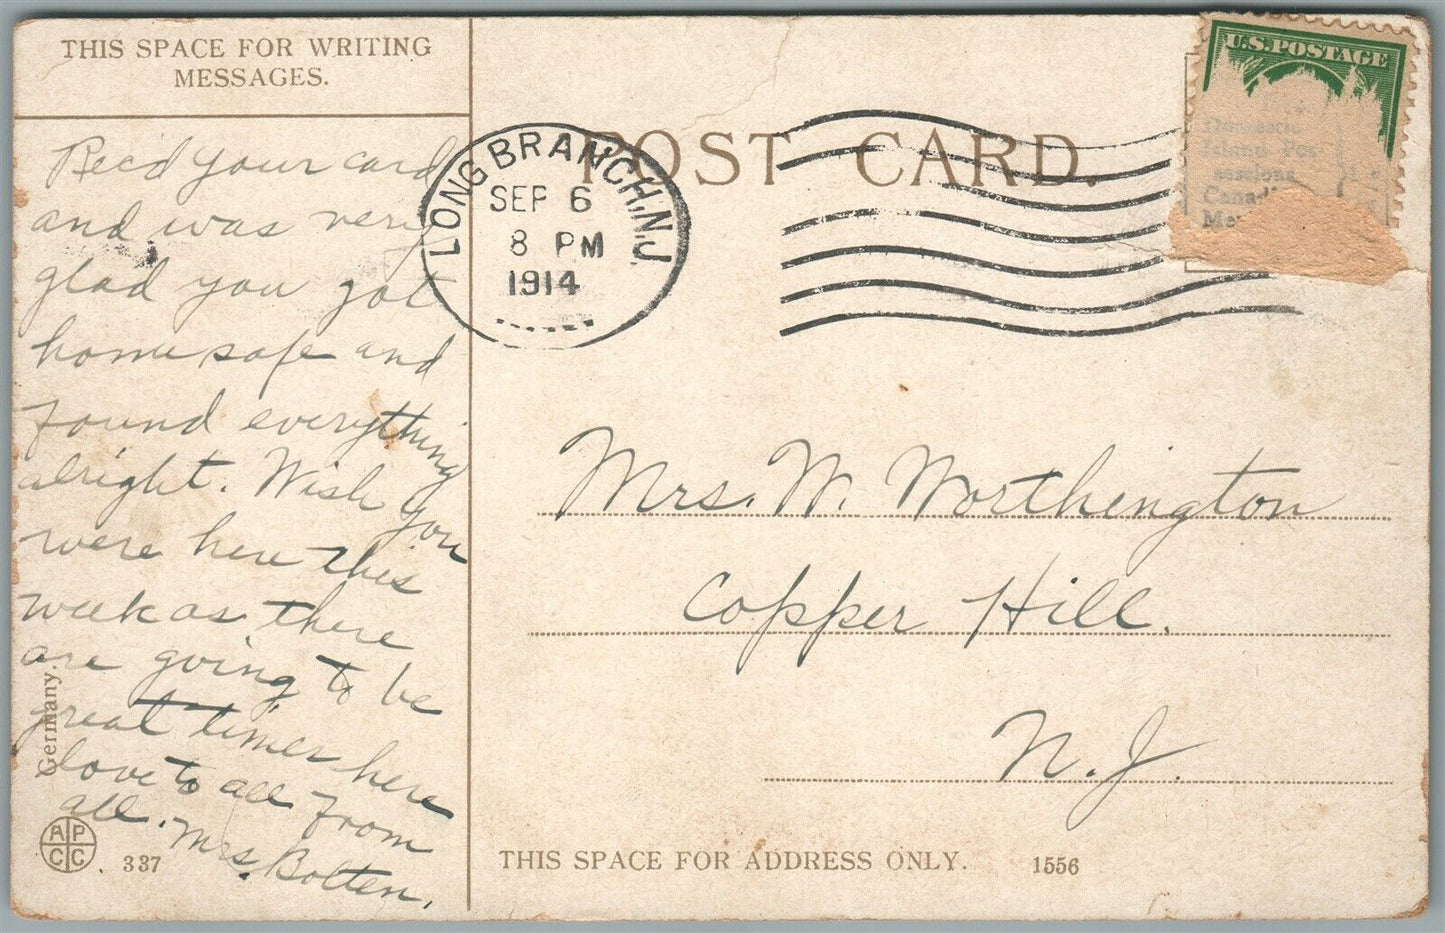 THIS SPACE FOR WRITING
MESSAGES.
Recd your card
and was very
glad you got
home safe and
found everything
alright. Wish you
were here this
week as there
are going to be
great times here
Love to all from
all. Mrs. Bolten.
Germany.
A P
C C
. 337
POST CARD.
LONG BRANCH, N.J.
SEP 6
8 PM
1914
U.S. POSTAGE
Domestic
Island Pos
sessions
Canad
Me
Mrs. M. Worthington
Copper Hill.
N. J.
THIS SPACE FOR ADDRESS ONLY. 1556